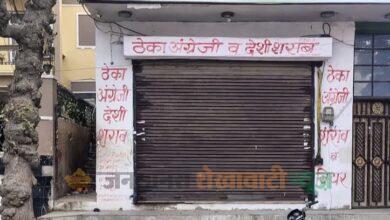 ठेका अंग्रेजी व देशी शराब
ठेका
अंग्रेजी
देशी
शराब
ठेका
अंग्रेजी
देशी
शराब
व
बियर
शेखावाटी